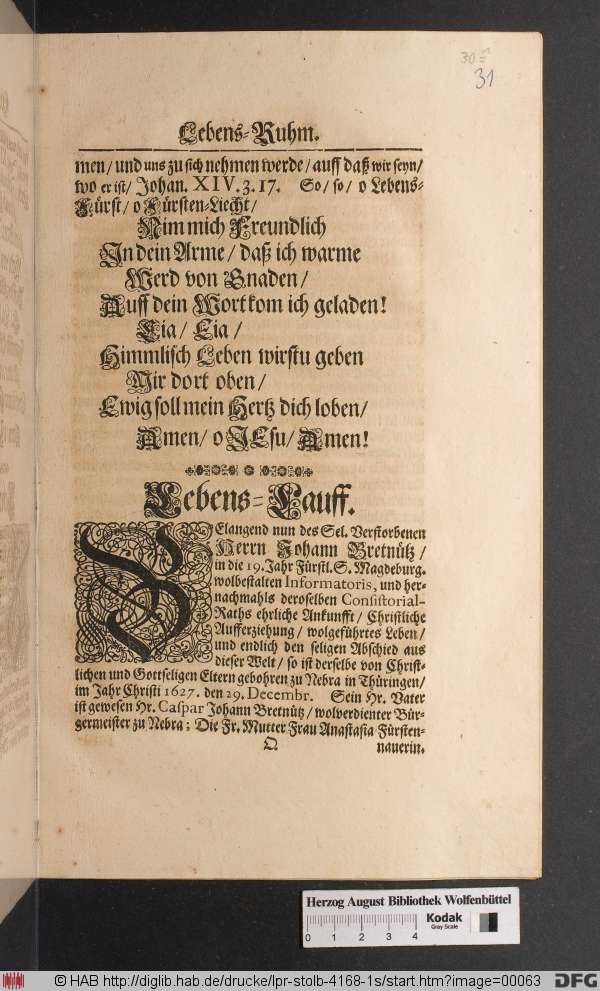 30
31
Lebens-Ruhm.
men/ und uns zu sich nehmen werde/ auff daß wir seyn/
wo er ist/ Johan. XIV. 3. 17. So/ so/ o Lebens-
Fürst/ o Fürsten-Liecht/
Nim mich Freundlich
In dein Arme/ daß ich warme
Werd von Gnaden/
Auff dein Wort kom ich geladen!
Eia/ Eia/
Himmlisch Leben wirstu geben
Mir dort oben/
Ewig soll mein Hertz dich loben/
Amen/ o JEsu/ Amen!
Lebens-Lauff.
BElangend nun des Sel. Verstorbenen
Herrn Johann Bretnütz/
in die 19. Jahr Fürstl. S. Magdeburg.
wolbestalten Informatoris, und her-
nachmahls deroselben Consistorial-
Raths ehrliche Ankunfft/ Christliche
Aufferziehung/ wolgeführtes Leben/
und endlich den seligen Abschied aus
dieser Welt/ so ist derselbe von Christ-
lichen und Gottseligen Eltern gebohren zu Nebra in Thüringen/
im Jahr Christi 1627. den 29. Decembr. Sein Hr. Vater
ist gewesen Hr. Caspar Johann Bretnütz/ wolverdienter Bür-
germeister zu Nebra; Die Fr. Mutter Frau Anastasia Fürsten-
Q
nauerin.
Herzog August Bibliothek Wolfenbüttel
Kodak
Gray Scale
0 1 2 3 4
© HAB http://diglib.hab.de/drucke/lpr-stolb-4168-1s/start.htm?image=00063
DFG